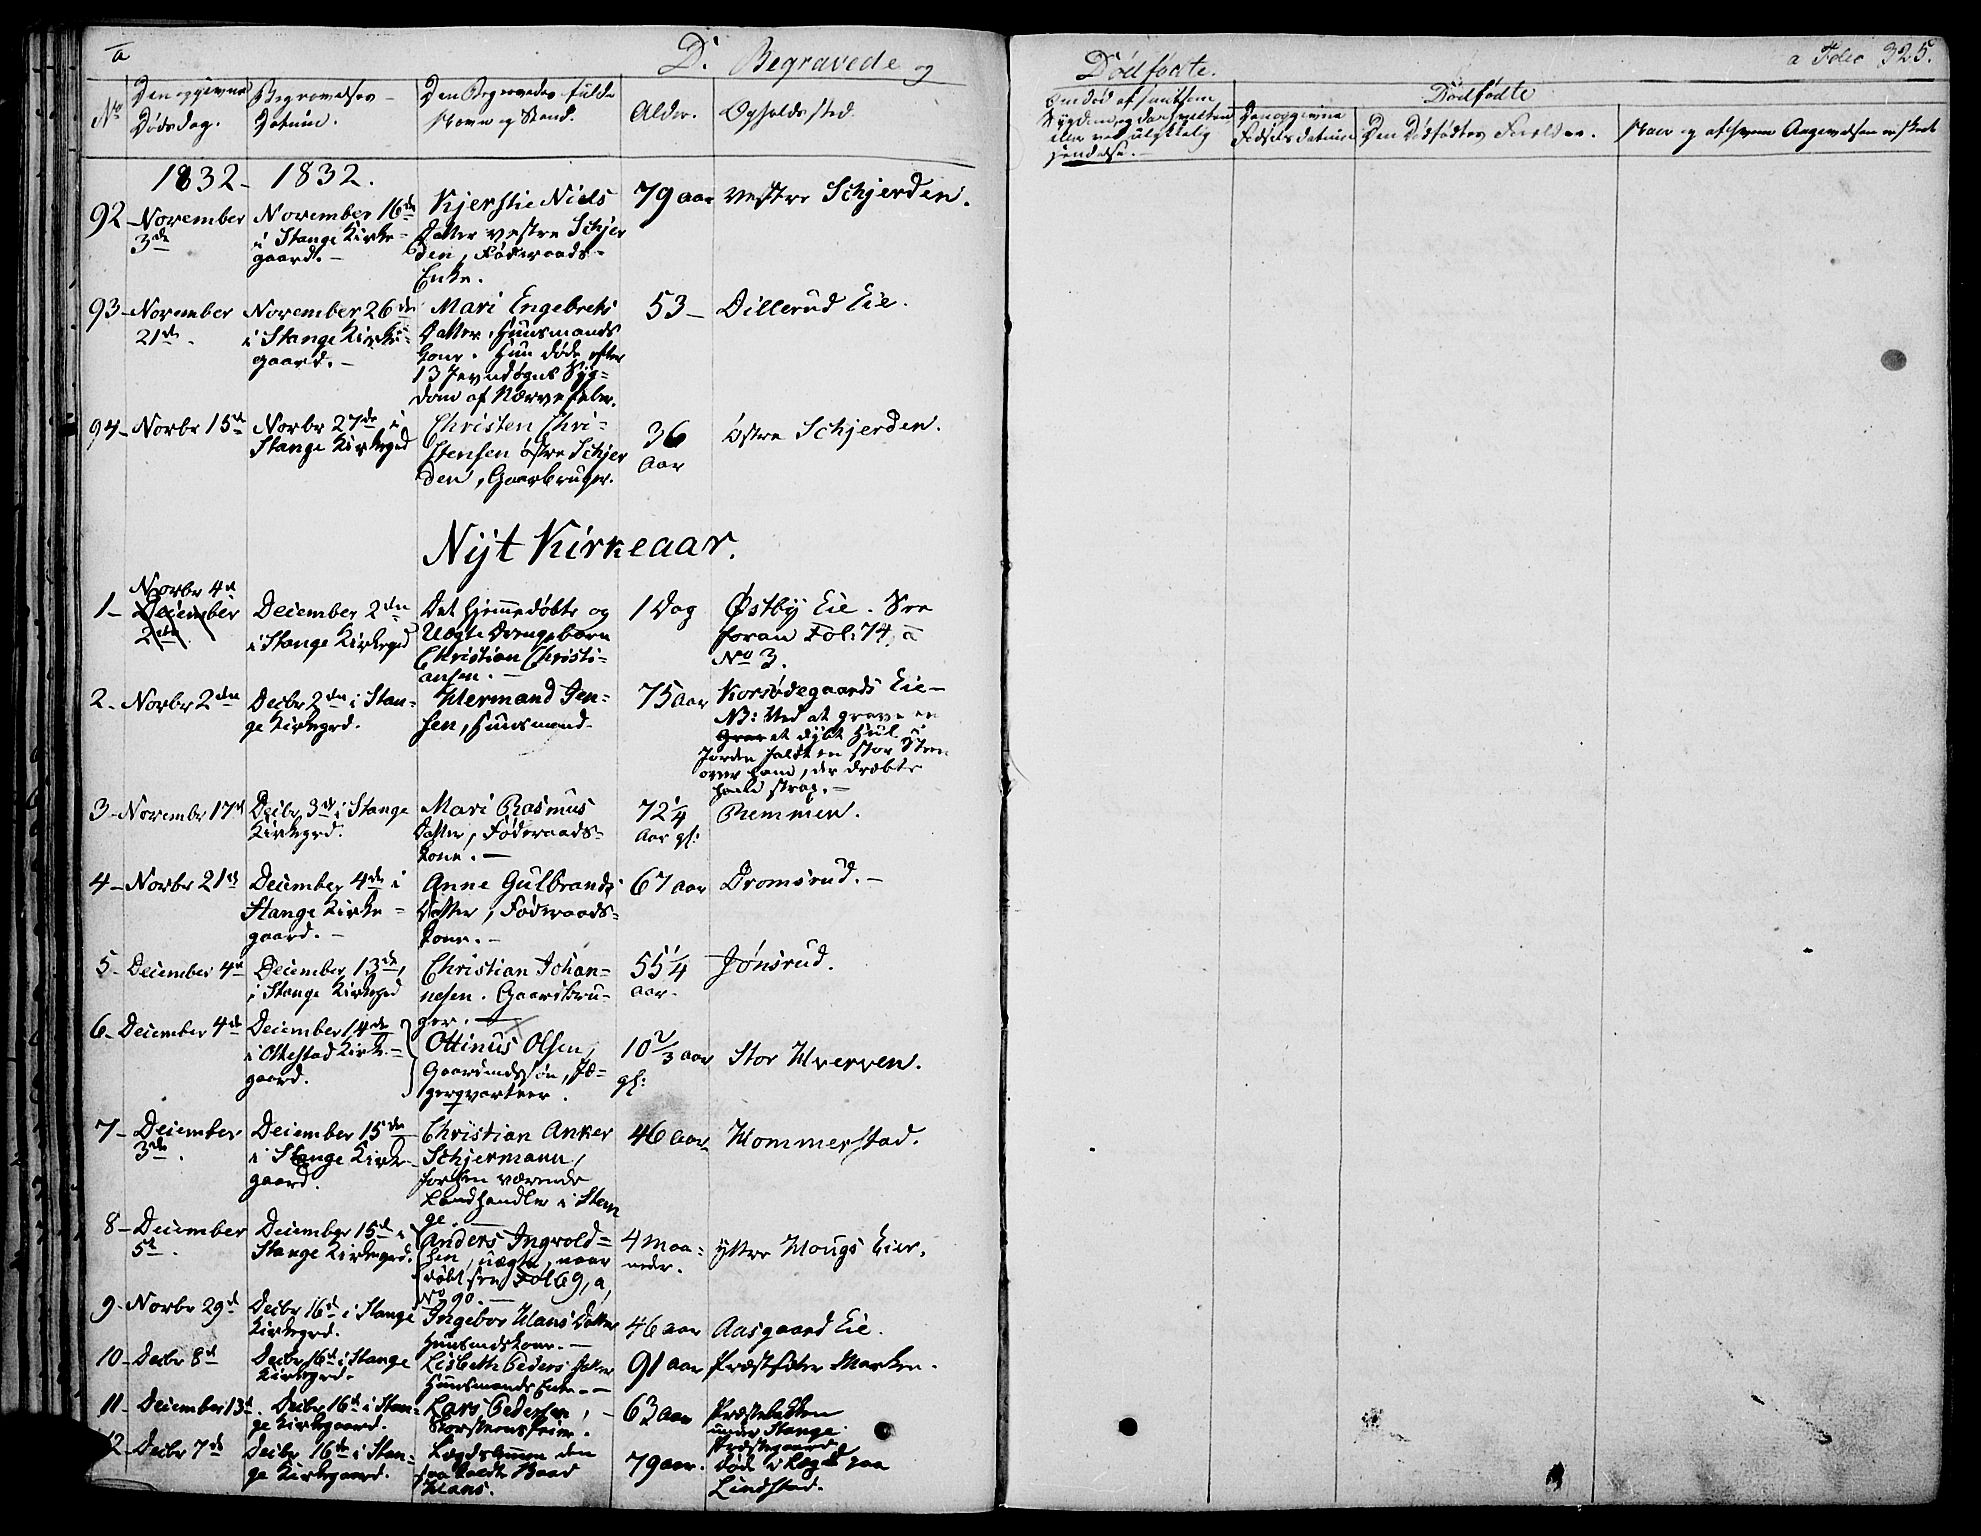 a
D. Begravede og
No
Den opgivne
Dødsdag.
Begravelses-
Datum.
Den Begravedes fulde
Navn og Stand.
Alder.
Opholdssted.
1832- 1832.
92 November
3de
November 16de
i Stange Kirke-
gaard.-
Kjerstie Niels
Datter vestre Schjer
den, Føderaads-
Enke.
79 aar
vestre Schjerden.
93-November
21de.
November 26de
i Stange Kirke-
gaard.-
Mari Engebrets
Datter, Huusmands
Kone. Hun døde efter
13 Jevndøgns Syg=
dom af Nervefeber.
53-
Dillerud Eie.
94- Novbr 15de
Novbr 27de i
Stange Kirkegrd
Christen Chri-
stensen østre Schjer
den, Gaarbruger.
36
Aar
Østre Schjerden.
Nyt Kirkeaar.
1- Novbr 4de
December
2den
December 2den
i Stange Kirkegrd
Det hjemmedøbte og
Uægte Drengebarn
Christian Christi-
ansen.-
1 Dag
Østby Eie. See
foran Fol: 74, a
No 3.
2- Novbr 2den
Decbr 2den i Stan-
ge Kirkegrd.
Hermand Jen-
sen, Huusmand.
75 aar
Korsødegaards Eie-
NB: Ved at grave en
Grav et dybt Hul i
Jorden faldt en stor Steen
over ham, der dræbte
ham strax.-
3- Novembr 17de
Decbr 3de i Stange
Kirkegrd.
Mari Rasmus
Datter, Føderaads-
kone.-
72 1/4
Aar gl:
Remmen.
4- Novbr 21de
December 4de i
Stange Kirke-
gaard.-
Anne Gulbrands
Datter, Føderaads-
kone.-
67 aar
Dromsrud.-
5- December 4de
December 13de,
i Stange Kirkegrd
Christian Johan-
nesen. Gaardbru-
ger.-
55 1/4
aar.
Jønsrud.
6- December 4de
December 14de
i Ottestad Kirke-
gaard.
Ottinus Olsen,
Gaardmdssøn, Jæ-
gerqvarteer.
10 2/3 aar
gl:
Stor Hverven.
7- December
3de.
December 15de
i Stange Kirke-
gaard.
Christian Anker
Schjermann,
forhen værende
Landhandler i Stan
ge.-
46 aar
Hommerstad.
8- December
5te.
December 15de i
Stange Kirkegrd.
Anders Ingvold-
sen, uægte, naar
døbt see Fol 69, a,
No 90.-
4 maa-
neder.
yttre Hougs Eier.
9- Novbr 29de
Decbr 16de i Stange
Kirkegrd.
Ingebor Hans Datter
Huusmdskone.-
46 aar
Aasgaard Eie.
10- Decbr 8de
Decbr 16de i Stange
Kirkegrd.
Lisbeth Peders Datter
Huusmands Enke.-
91 aar
Præstsæter Marken.
11- December 13de.
Decbr 16de i Stan-
ge Kirkegaard.
Lars Pedersen,
Skorsteensfeier.
63 aar
Præstebakken
under Stange
Præstegaard
12- Decbr 7de
Decbr 16de i Stan-
ge Kirkegaard.
Lægdslemmen den
saa kaldte
Hans.
79 aar.
døde i Lægd paa
Lindstad.
Dødfødte.
a Folio 325.
Om død af smitsom
Sygdom, og
eller ved ulykkelig
hændelse.-
Dødfødte
Den opgivne
Fødselsdatum
Den Dødfødtes Forældre.
Naar og af hvem Angivelsen er skeet